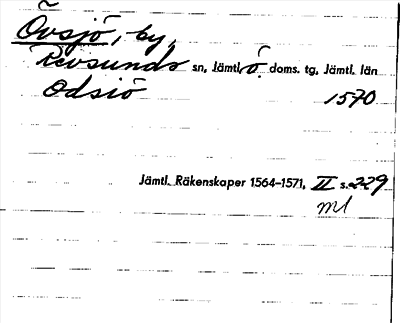 Övsjö, by,
Revsunds sn, Jämtl. Ö. doms. tg, Jämtl. län
Odsiö 1570
Jämtl. Räkenskaper 1564–1571, II s. 229
ml